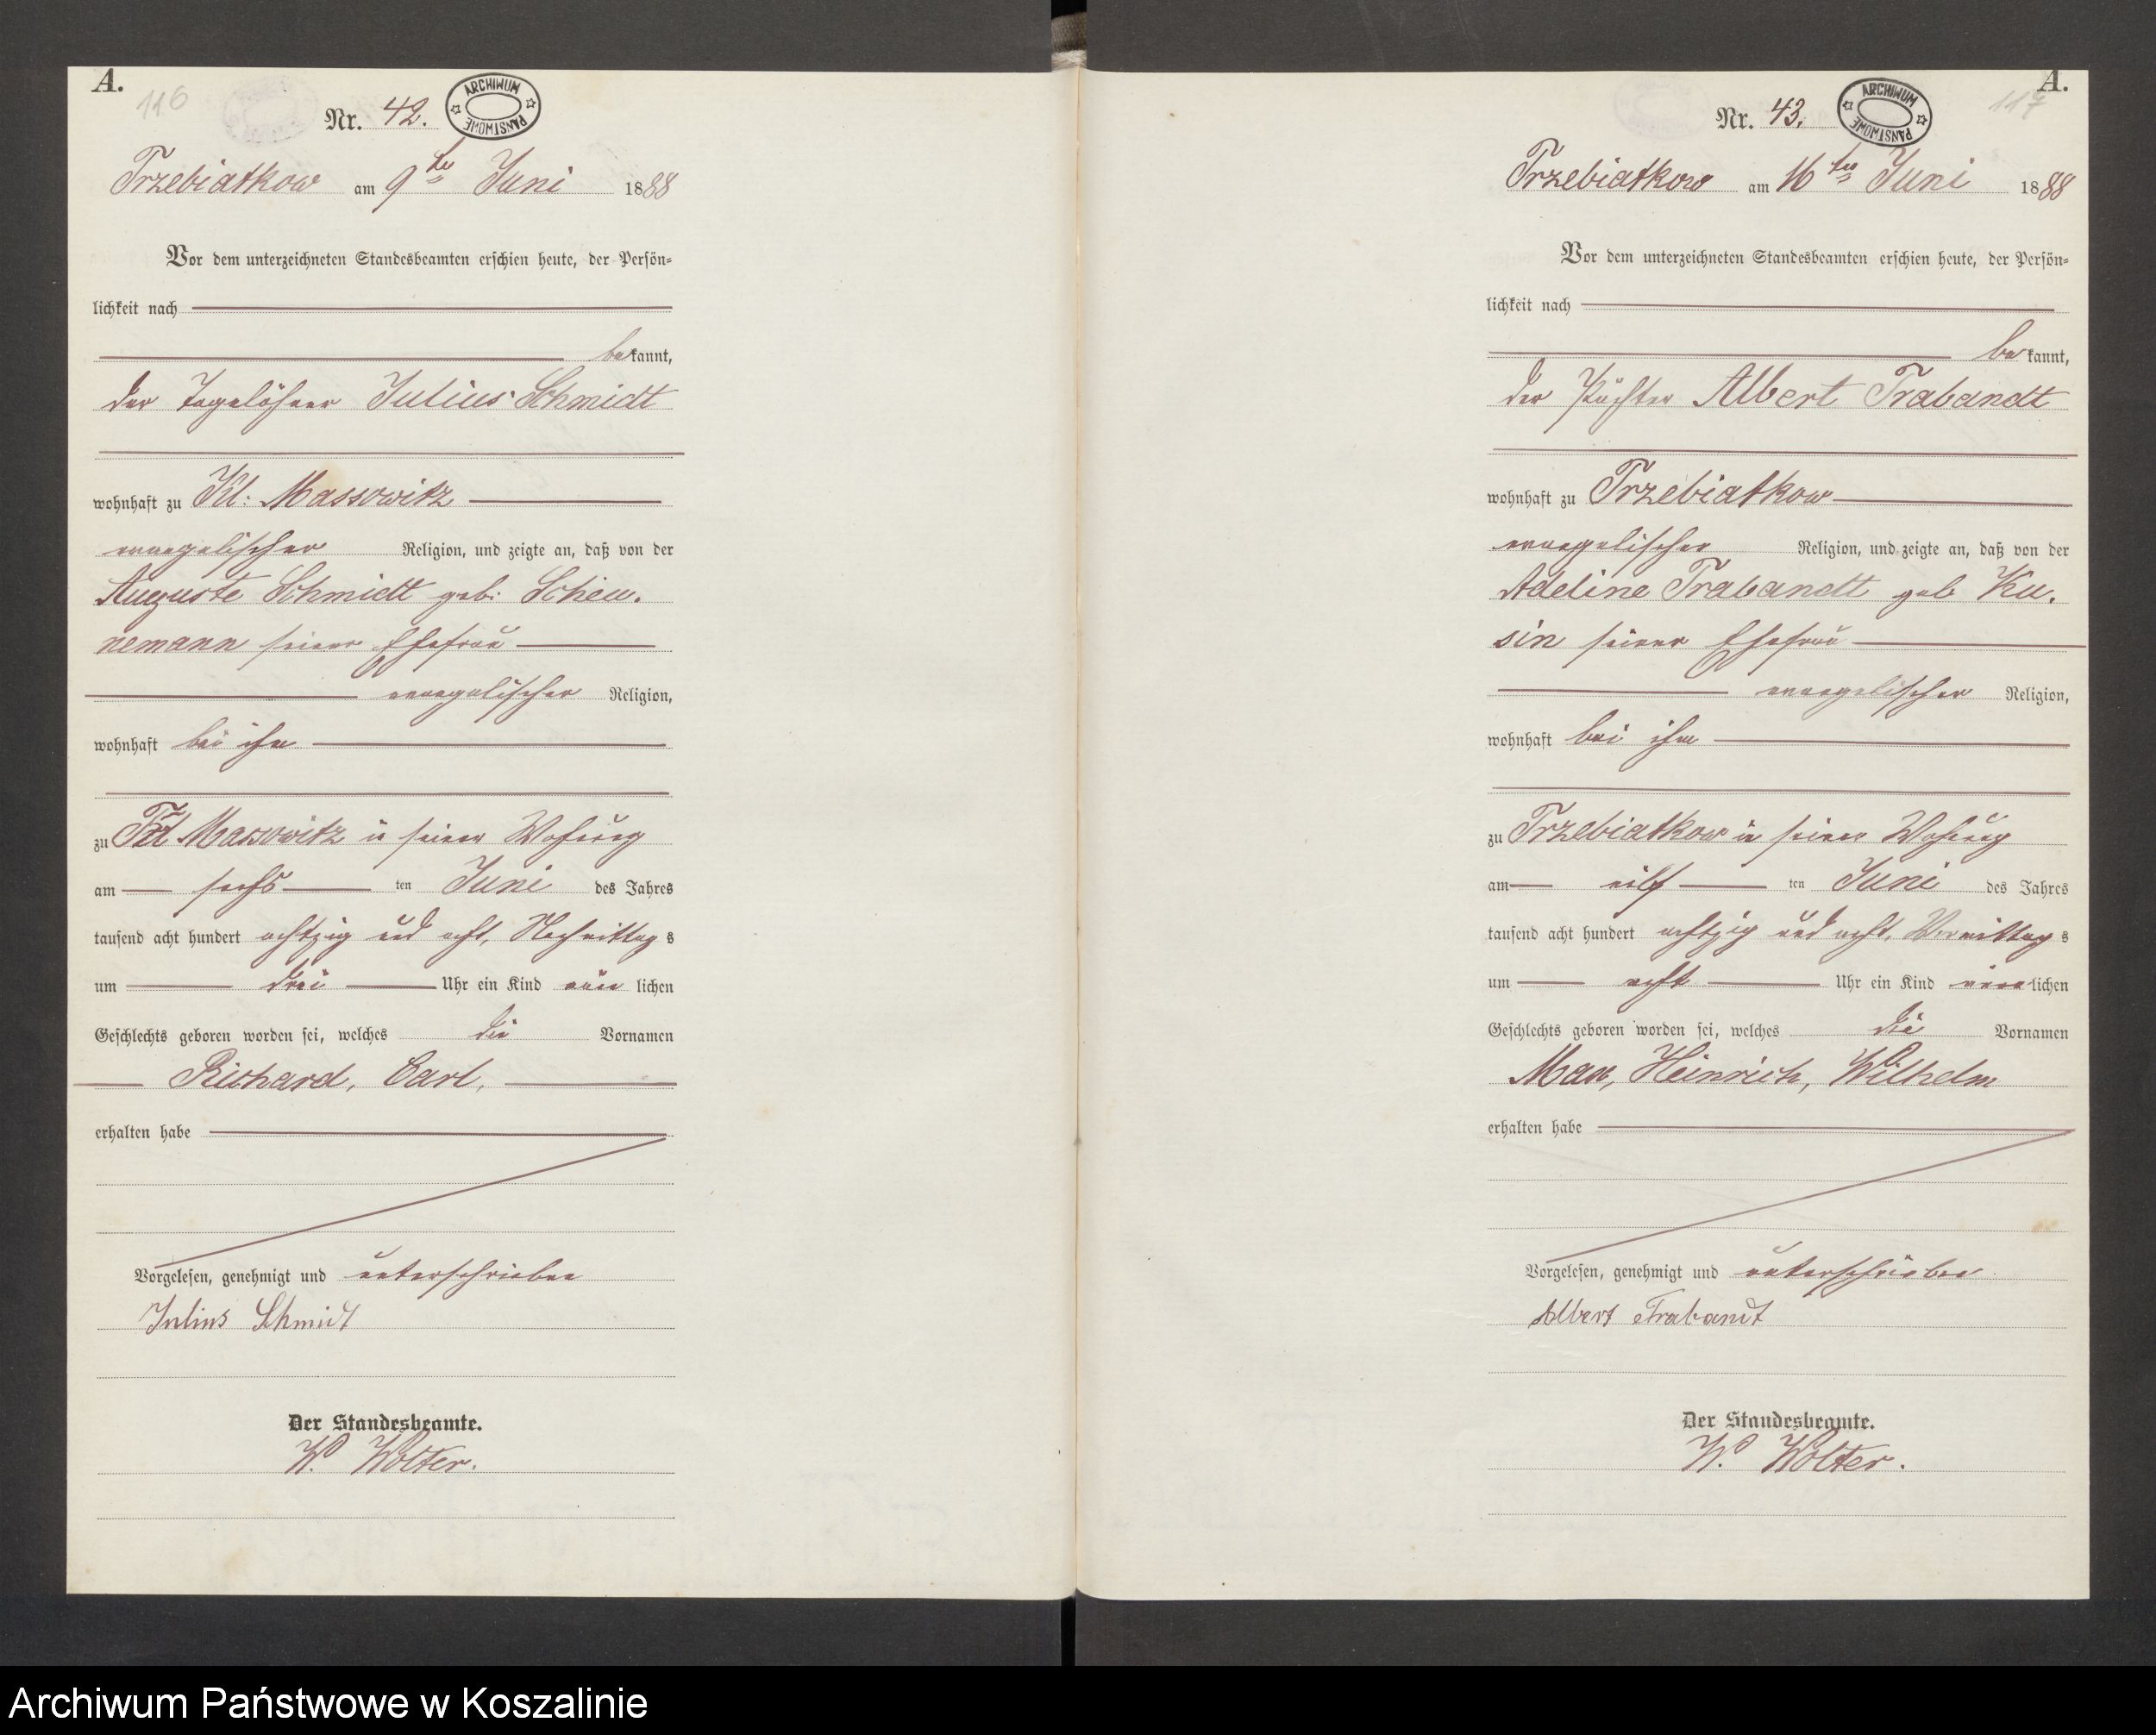 A.
116
Nr. 42.
ARCHIWUM PAŃSTWOWE
Trzebiatkow am 9ten Juni 1888
Vor dem unterzeichneten Standesbeamten erschien heute, der Persön-
lichkeit nach
bekannt,
der Tagelöhner Julius Schmidt
wohnhaft zu Kl. Massowitz
evangelischer Religion, und zeigte an, daß von der
Auguste Schmidt geb. Scheu-
nemann seiner Ehefrau
evangelischer Religion,
wohnhaft bei ihm
zu Kl Massowitz in seiner Wohnung
am sechs ten Juni des Jahres
tausend acht hundert achtzig und acht, Nachmittags
um drei Uhr ein Kind männlichen
Geschlechts geboren worden sei, welches die Vornamen
Richard, Carl,
erhalten habe
Vorgelesen, genehmigt und unterschrieben
Julius Schmidt
Der Standesbeamte.
W. Wolter.
A.
117
Nr. 43.
ARCHIWUM PAŃSTWOWE
Trzebiatkow am 16ten Juni 1888
Vor dem unterzeichneten Standesbeamten erschien heute, der Persön-
lichkeit nach
bekannt,
der Pächter Albert Trabandt
wohnhaft zu Trzebiatkow
evangelischer Religion, und zeigte an, daß von der
Adeline Trabandt geb Ku-
sin seiner Ehefrau
evangelischer Religion,
wohnhaft bei ihm
zu Trzebiatkow in seiner Wohnung
am eilf ten Juni des Jahres
tausend acht hundert achtzig und acht, Vormittags
um acht Uhr ein Kind männlichen
Geschlechts geboren worden sei, welches die Vornamen
Max, Heinrich, Wilhelm
erhalten habe
Vorgelesen, genehmigt und unterschrieben
Albert Trabandt
Der Standesbeamte.
W. Wolter.
Archiwum Państwowe w Koszalinie